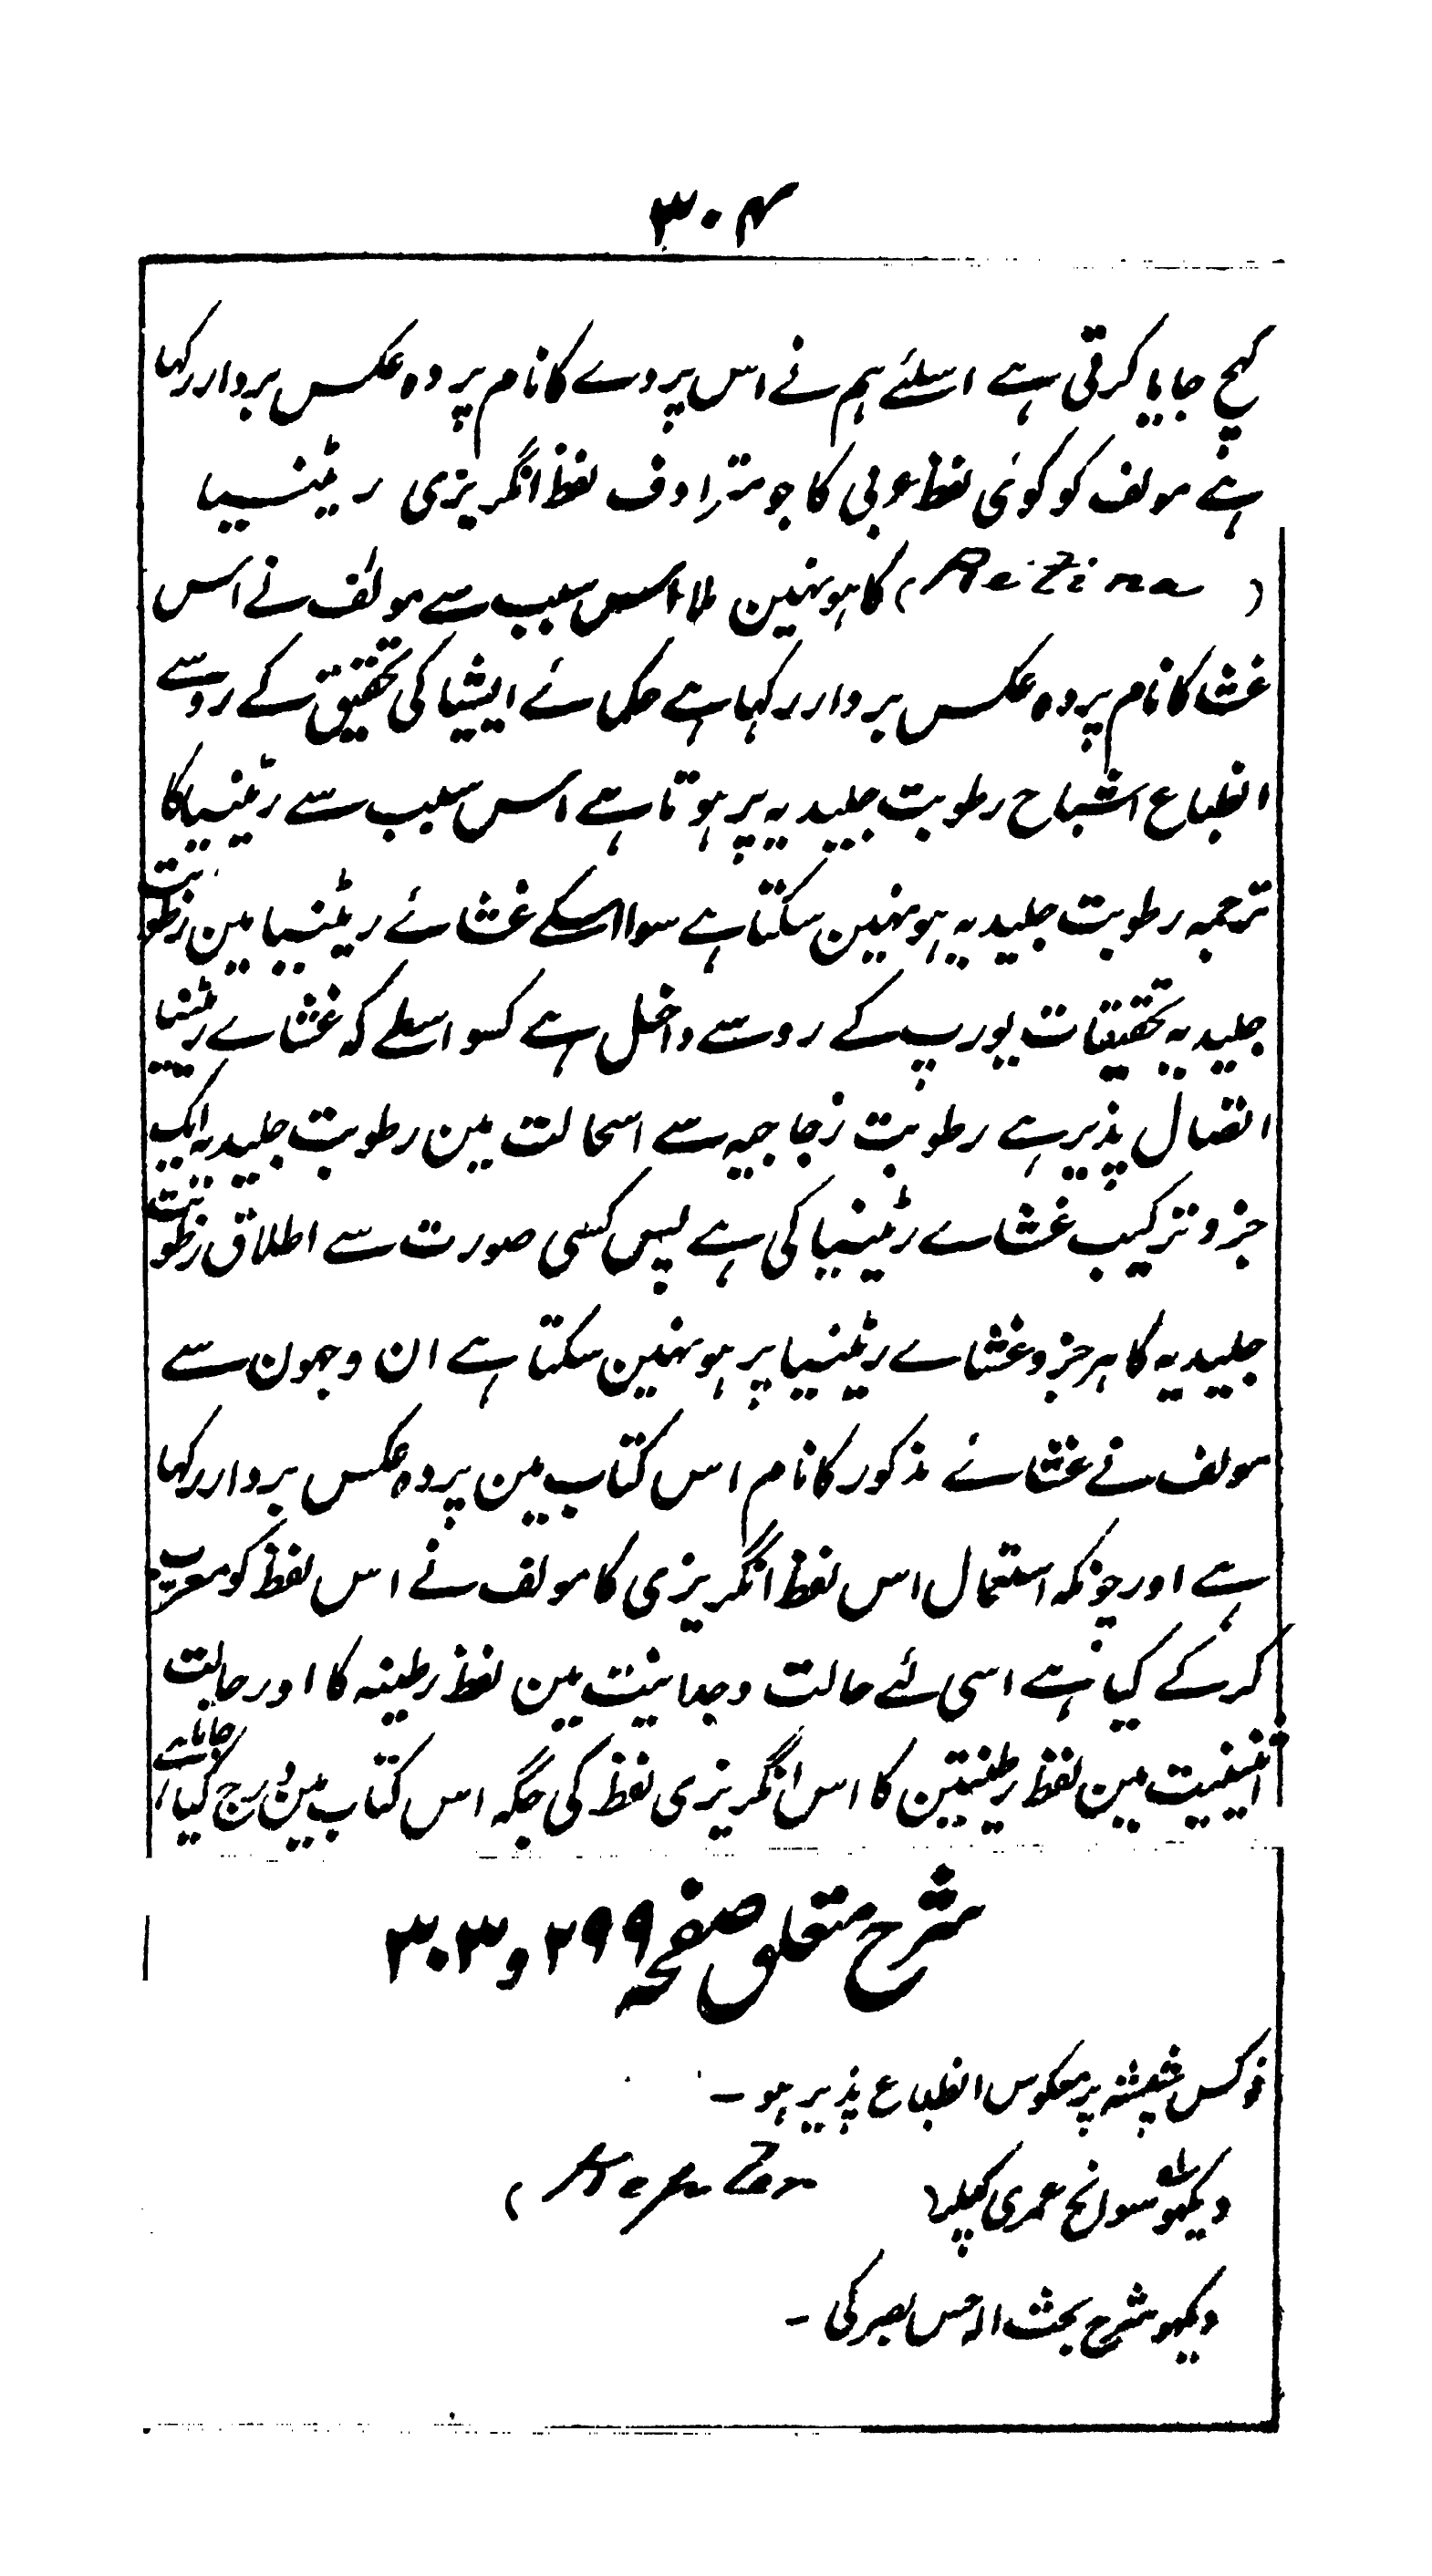 ۳۰۴
کھچ جایا کرتی ہے اسلئے ہم نے اس پردے کا نام پردہ عکس بردار رکہا
ہے مولف کو کوئی لفظ عربی کا جو مترادف لفظ انگریزی ریٹنیا
(Retina) کا ہو نہین ملا اس سبب سے مولف نے اس
غشا کا نام پردہ عکس بردار رکہا ہے حکمائے ایشیا کی تحقیق کے روسے
انطباع اشباح رطوبت جلیدیہ پر ہوتا ہے اس سبب سے رٹینیا کا
ترجمہ رطوبت جلیدیہ ہو نہین سکتا ہے سوا اسکے غشائے ریٹنیا مین رطوبت
جلیدیہ تحقیقات یورپ کے روسے داخل ہے کسواسطے کہ غشاے رٹینیا
اتصال پذیر ہے رطوبت زجاجیہ سے اسحالت مین رطوبت جلیدیہ ایک
جزو ترکیب غشاے رٹینیا کی ہے پس کسی صورت سے اطلاق رطوبت
جلیدیہ کا ہر جزو غشاے رٹینیا پر ہو نہین سکتا ہے ان وجہون سے
مولف نے غشائے مذکور کا نام اس کتاب مین پردہ عکس بردار رکہا
ہے اور چونکہ استعمال اس لفظ انگریزی کا مولف نے اس لفظ کو معرب
کرکے کیا ہے اسی لئے حالت وحدانیت مین لفظ رطینہ کا اور حالت
اثنینیت مین لفظ رطنیتین کا اس انگریزی لفظ کی جگہ اس کتاب مین درج کیا جاتا ہے
شرح متعلق صفحہ ۲۹۹ و ۳۰۳
فوکس شیشہ پر معکوس انطباع پذیر ہو ۔
دیکھو سوانح عمری کپلر (Kepler)
دیکھو شرح بحث الہ حس بصر کی ۔